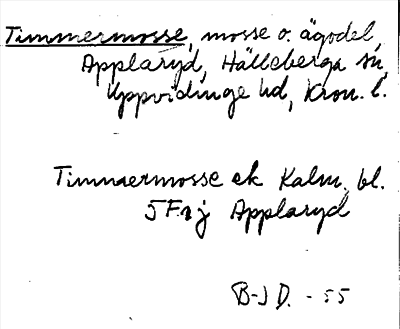 Timmermosse, mosse o. ägodel,
Applaryd, Hälleberga sn,
Uppvidinge hd, Kron. l.
Timmermosse ek Kalm. bl.
5 F nj Applaryd
B-J D. - 55